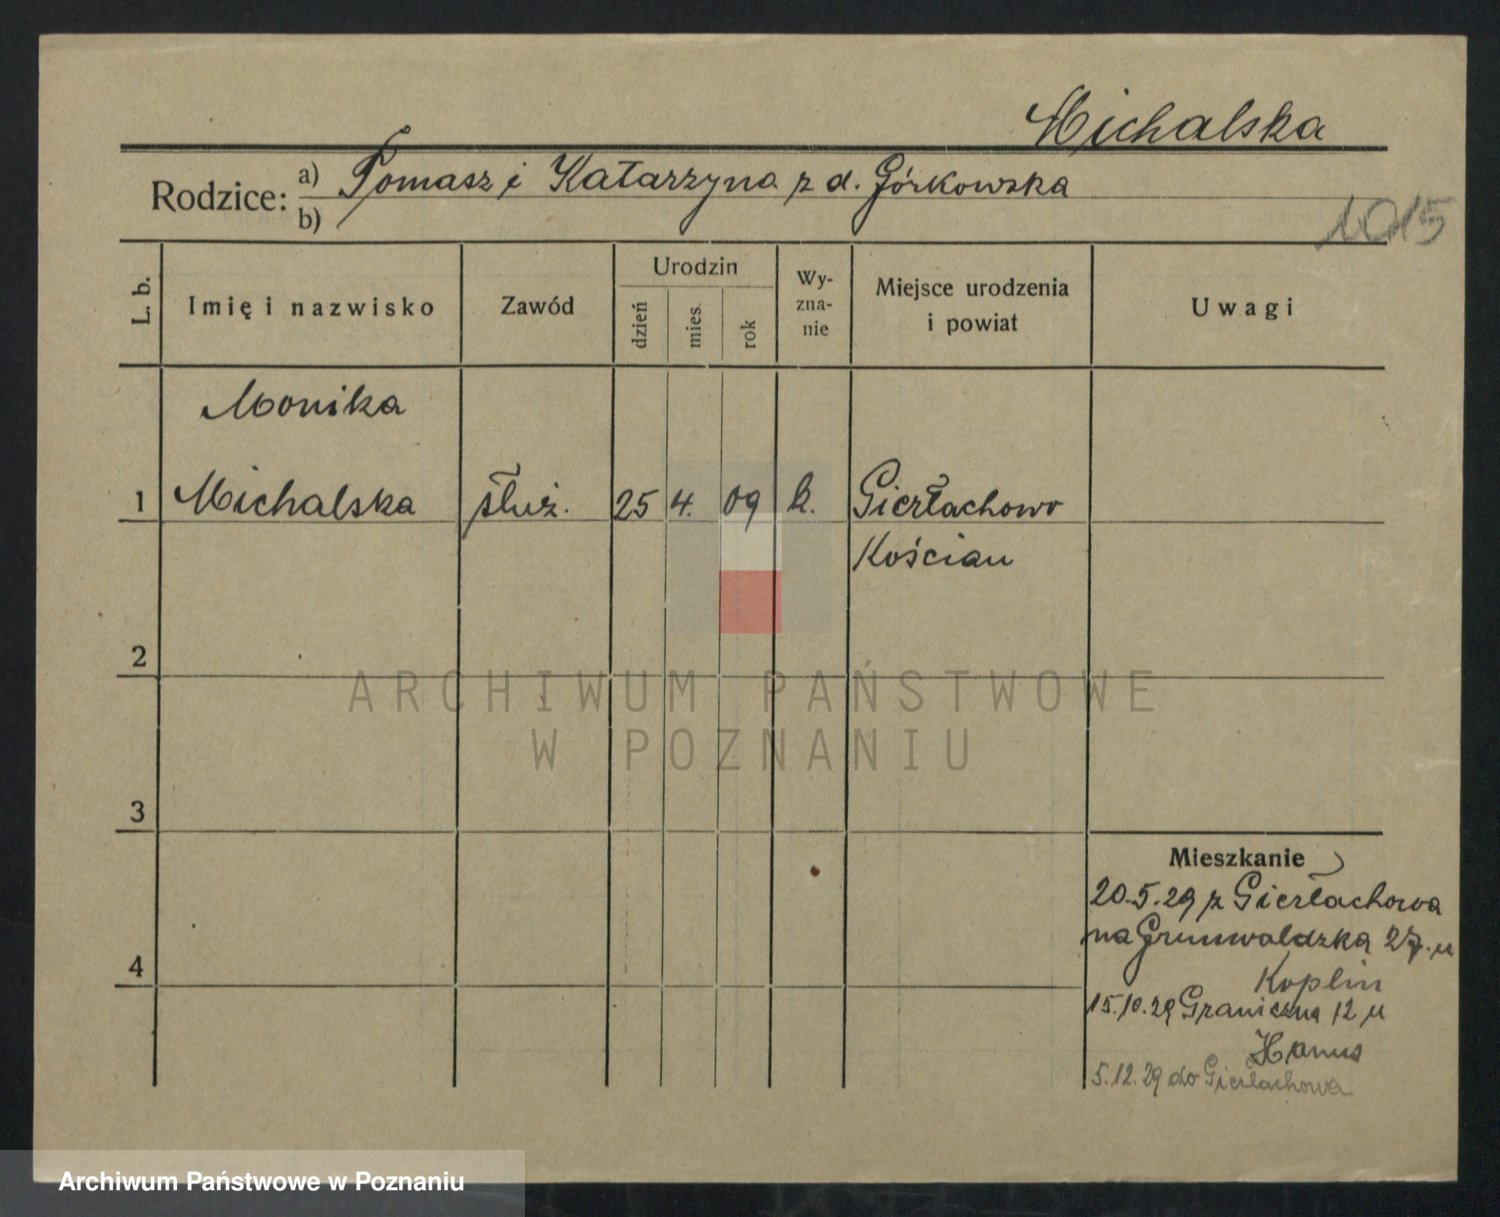 Michalska
Rodzice: a) Tomasz i Katarzyna z d. Górkowska
b)
1015
L. b.
Imię i nazwisko
Zawód
Urodzin
dzień
mies.
rok
Wy-
zna-
nie
Miejsce urodzenia
i powiat
Uwagi
Monika
1 Michalska służ. 25 4. 09 k. Gierłachowo
Kościan
2
ARCHIWUM PAŃSTWOWE
W POZNANIU
3
Mieszkanie
20.5.29 z Gierłachowa
na Grunwaldzka 27. u
Koplin
15.10.29 Graniczna 12 u
Hanus
5.12.29 do Gierłachowa
4
Archiwum Państwowe w Poznaniu